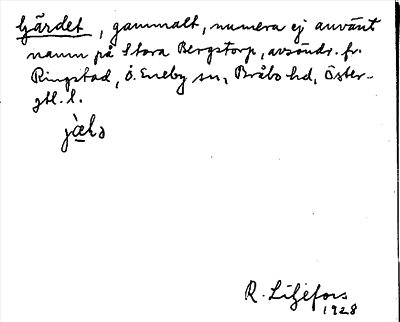 Gärdet, gammalt, numera ej använt
namn på Stora Bergstorp, avsöndr. fr.
Ringstad, Ö. Eneby sn, Bråbo hd, Öster-
gtl. l.
R. Liljefors
1928